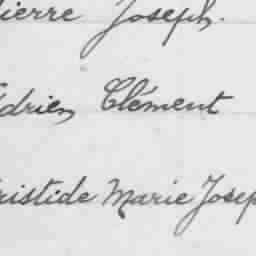 Pierre Joseph.
Adrien Clément
Aristide Marie Joseph